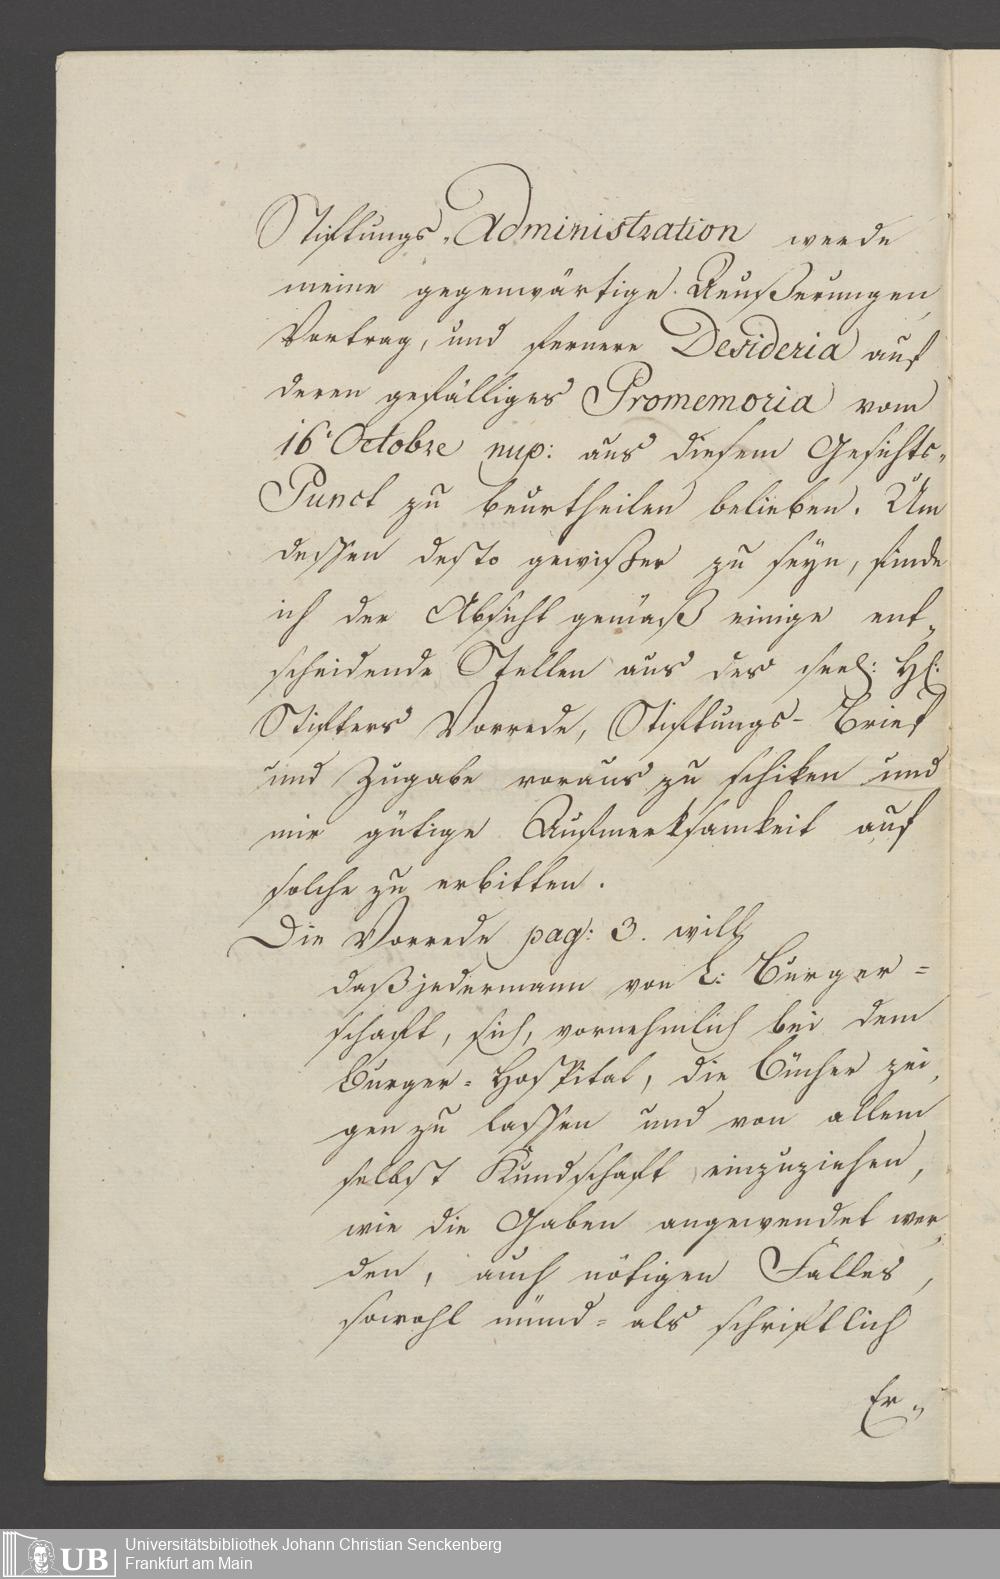 Stiftungs-Administration werde
meine gegenwärtige Aeußerungen,
Vortrag, und fernere Desideria auf
deren gefälliges Promemoria vom
16t Octobre nup: aus diesem Gesichts-
Punct zu beurtheilen belieben. Um
dessen desto gewißer zu seyn, finde
ich der Absicht gemäß einige ent-
scheidende Stellen aus des seel: H.
Stifters Vorrede, Stiftungs-Brief
und Zugabe voraus zu schiken und
mir gütige Aufmerksamkeit auf
solche zu erbitten.
Die Vorrede pag: 3. will
daß jedermann von L: Burger=
schaft, sich, vornehmlich bei dem
Burger=Hospital, die Bücher zei-
gen zu lassen und von allem
selbst Kundschaft einzuziehen,
wie die Gaben angewendet wer-
den, auch nötigen Falles,
sowohl münd= als schriftlich
Er-
UB
Universitätsbibliothek Johann Christian Senckenberg
Frankfurt am Main